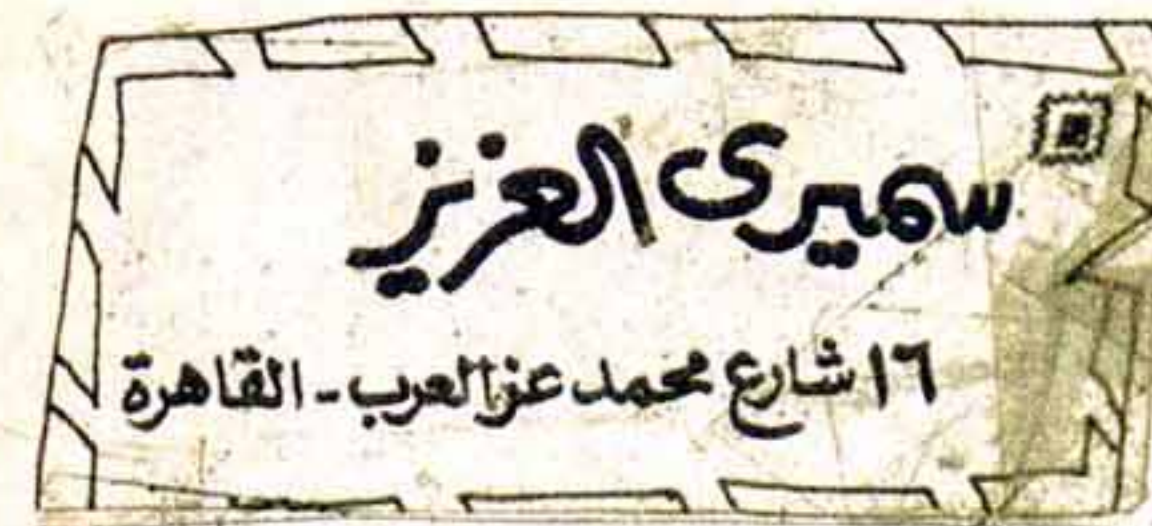 سميرى العزيز
١٦ شارع محمد عز العرب - القاهرة